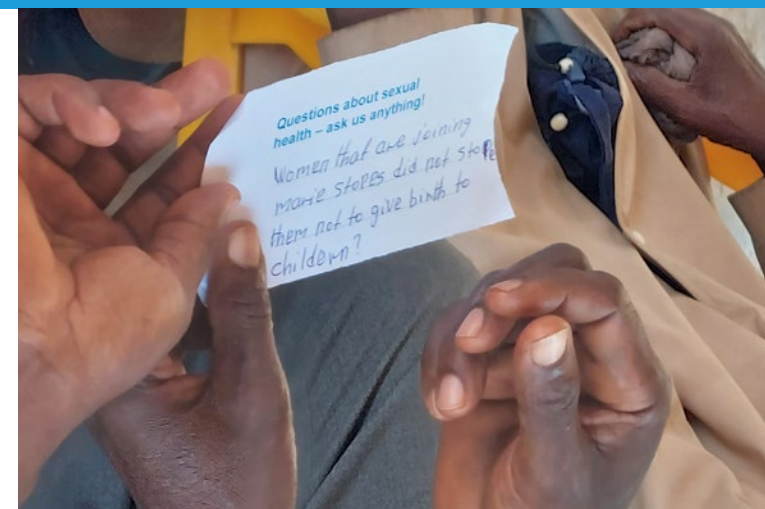 Questions about sexual
health – ask us anything!
Women that are joining
marie stopes did not stope
them not to give birth to
childern?